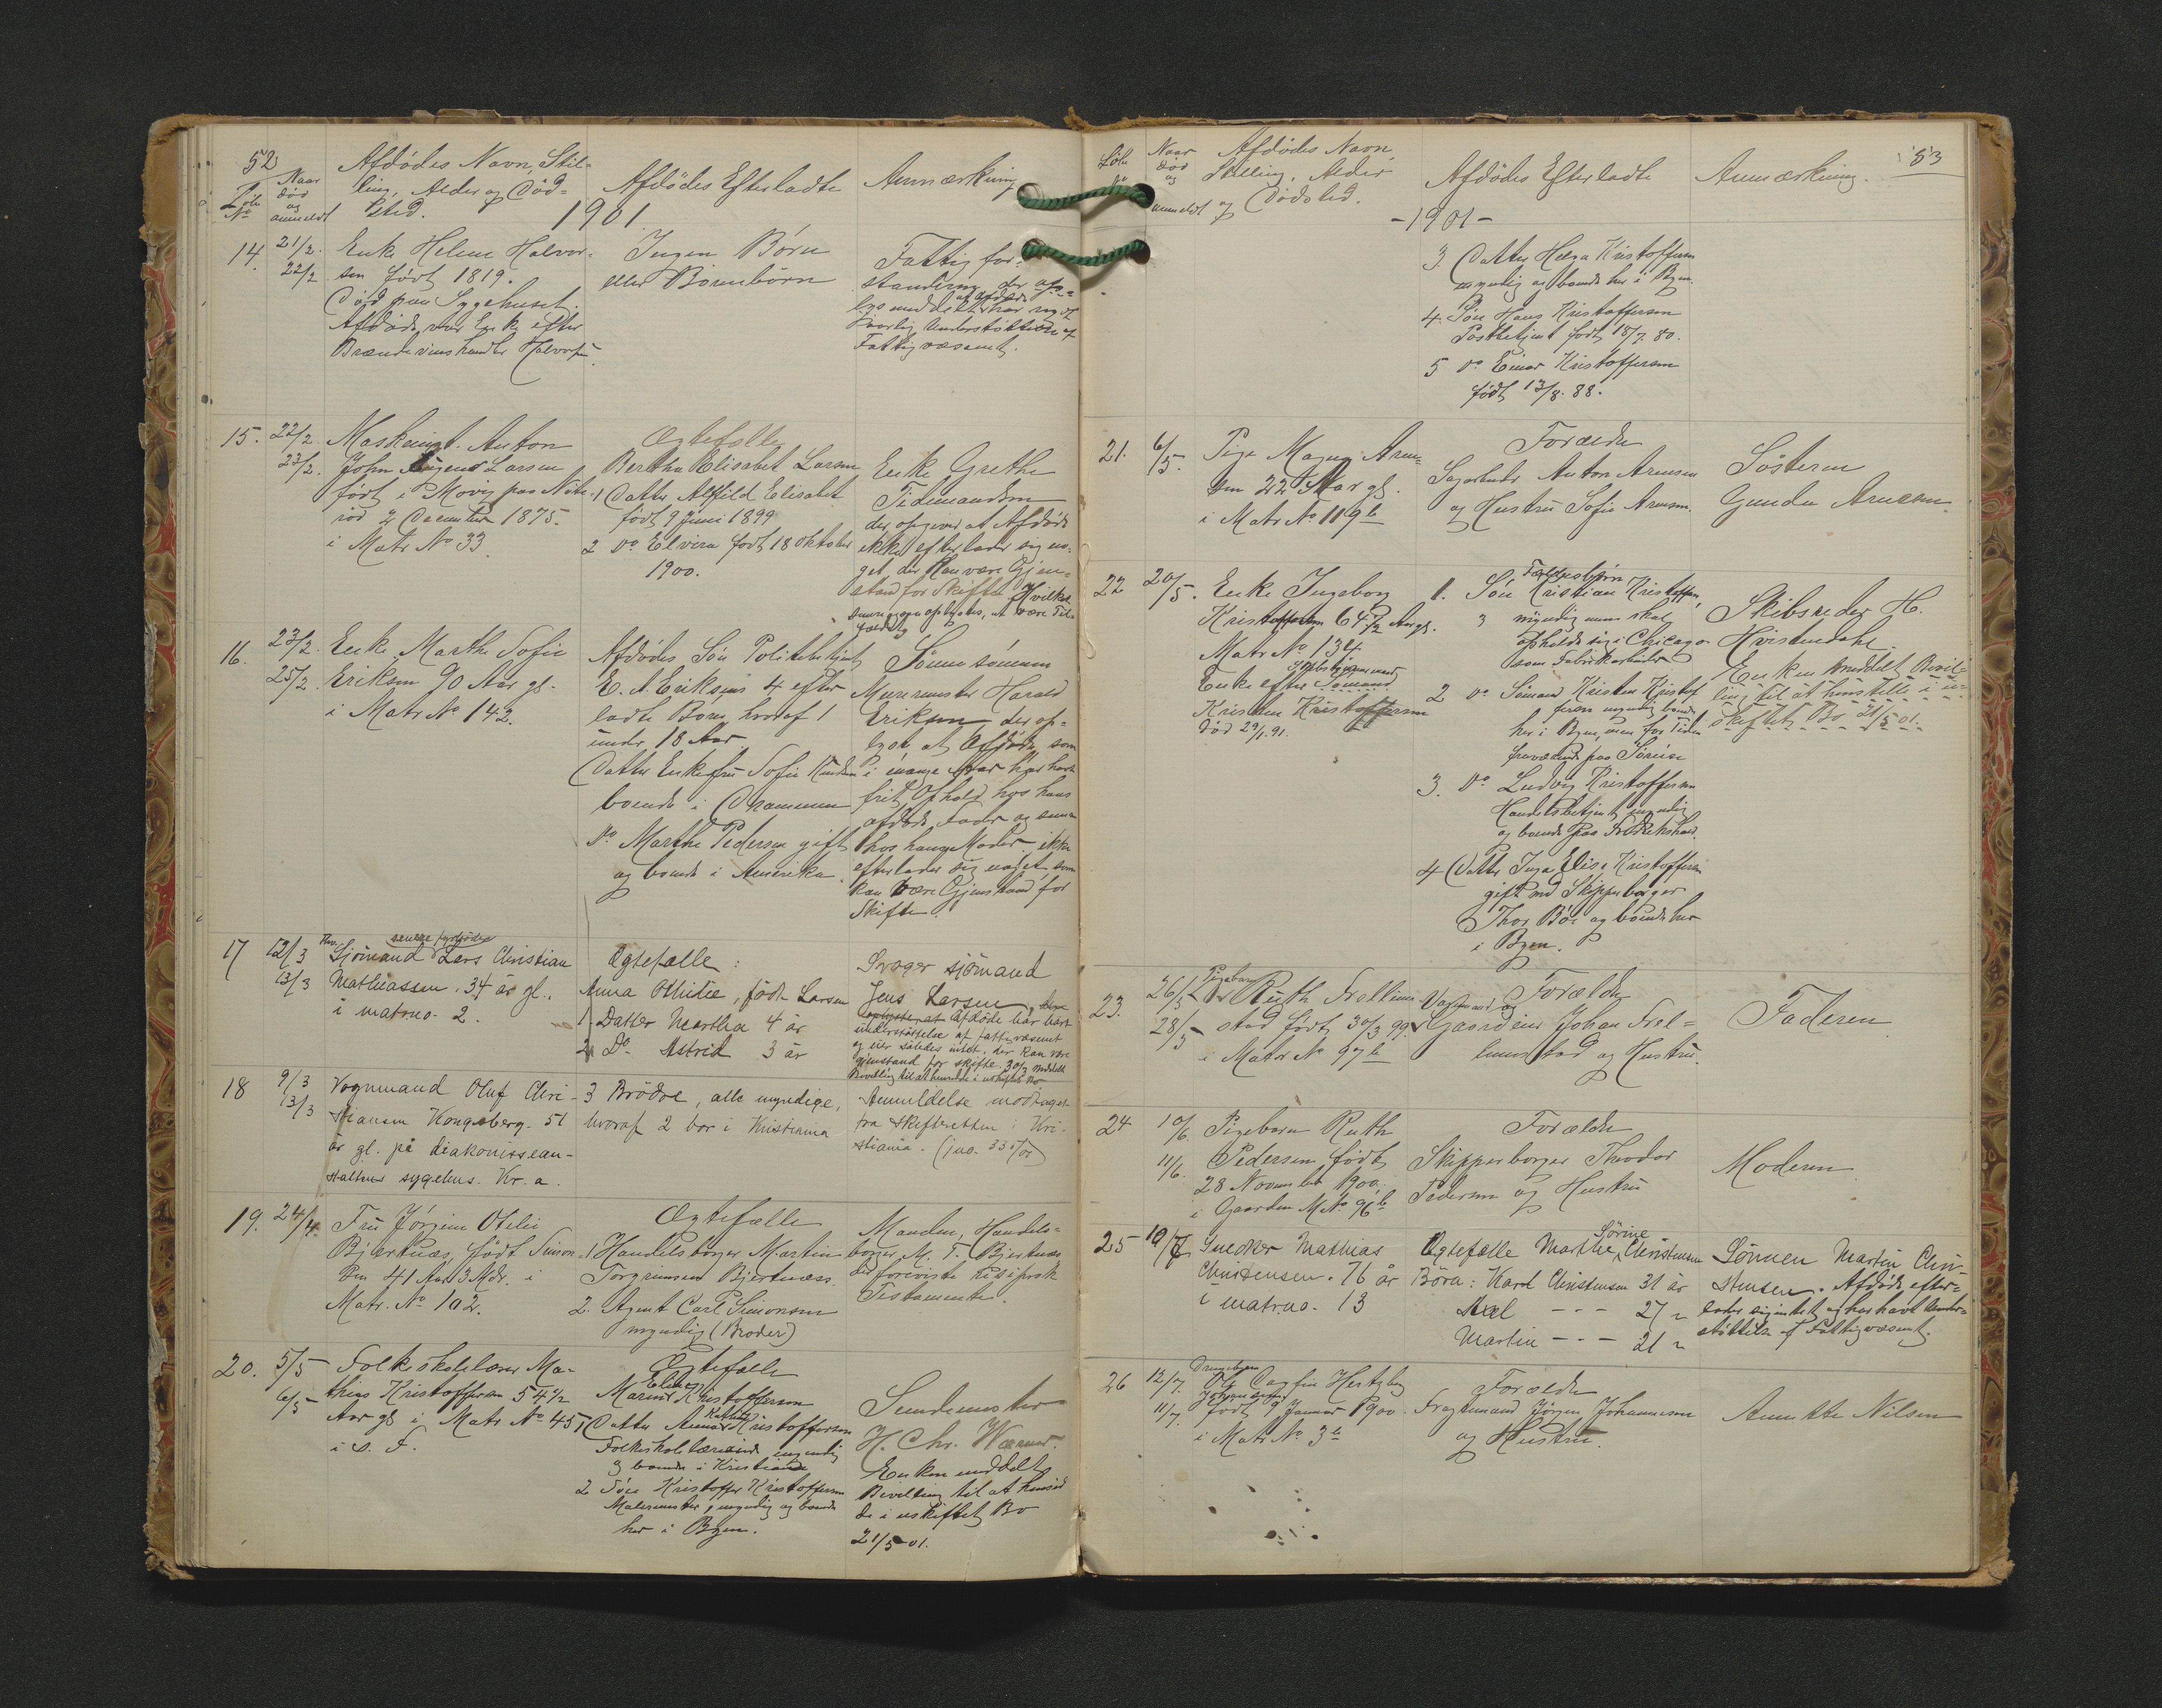 52
Løbe
No
Naar
død
og
anmeldt
Afdødes Navn, Stil-
ling, Alder og Død-
sted.
Afdødes Efterladte
Anmærkning
1901
14.
21/2.
22/2
Enke Helene Halvor-
sen født 1819.
Død paa Sygehuset.
Afdøde var Enke efter
Brændevinshandler Halvorsen.
Ingen Børn
eller Børnebørn
Fattigfor-
standeren der op-
lyser at afdøde har nydt
Understøttelse af
Fattigvæsenet.
15.
22/2
23/2.
Maskinist. Anton
John Larsen
født i Movig paa Nøte-
rød 2 December 1875.
i Matr No 33.
Ægtefælle
Bertha Elisabet Larsen
1 Datter Alfild Elisabet
født 9 Juni 1899
2 Do Elvira født 18 Oktober
1900.
Enke Grethe
Tidemandsen
der opgiver at Afdøde
ikke efterlader sig no-
get, der kan være Gjen-
stand for Skifte. Hvilket
at være Til-
fældet
16.
23/2.
25/2.
Enke Marthe Sofie
Eriksen 90 Aar gl.
i Matr No 142.
Afdødes Søn Politibetjent
E. A. Eriksens 4 efter-
ladte Børn, hvoraf 1
under 18 Aar
Datter Enkefru Sofie Knudsen
boende i Drammen
Do Marthe Pedersen gift
og boende i Amerika.
Sønnesønnen
Murermester Harald
Eriksen, der op-
lyste, at Afdøde, som
i mange Aar har havt
frit Ophold hos hans
afdøde Fader og senere
hos hans Moder, ikke
efterlader sig noget som
kan være Gjenstand for
Skifte.
17
12/3
13/3
Sjømand Lars Christian
Mathiassen. 34 år gl.
i matrno. 2.
Ægtefælle:
Anna Othilie, født Larsen
1 Datter Martha 4 år
2 Do Astrid 3 år
Svoger sjømand
Jens Larsen,
Afdøde har havt
understøttelse af fattigvæsenet
og eier således intet, der kan være
gjenstand for skifte. 30/3 meddelt
Bevilling til at hensidde i uskiftet Bo
18
9/3
13/3
Vognmand Oluf Chri-
stiansen Kongsberg. 51
år gl. på diakonissean-
staltens sygehus. Kr.a.
3 Brødre, alle myndige,
hvoraf 2 bor i Kristiania
Anmeldelse modtaget
fra skifteretten i Kri-
stiania. (jno. 335/01)
19.
24/4.
Fru Jørgine Otelie
Bjertnæs, født Simon-
sen 41 Aar 3 Mdr. i
Matr. No 102.
Ægtefælle
1 Handelsborger Martin
Torgrimsen Bjertnæss.
2. Agent Carl Simonsen
myndig (Broder)
Manden, Handels-
borger M. T. Bjertnæs
der foreviste Resiprok
Testamente.
20.
5/5
6/5
Folkeskolelærer Ma-
thias Kristoffersen 54 1/2
Aar gl i Matr No 45
i S. F.
Ægtefælle
Marine Elise Kristoffersen
1 Datter Anna Kristoffersen
Folkeskolelærerinde myndig
og boende i Kristiania
2 Søn Kristoffer Kristoffersen
Malermester, myndig og boende
her i Byen.
H. Chr. Warner.
Enken meddelt
Bevilling til at hensid-
de i uskiftet Bo
21/5-01.
53
Løbe
No
Naar
død
og
anmeldt
Afdødes Navn,
Stilling, Alder
og Dødsted.
Afdødes Efterladte
Anmærkning.
-1901-
3. Datter Helga Kristoffersen
myndig og boende her i Byen
4. Søn Hans Kristoffersen
Postbetjent født 18/7. 80.
5 Do Einar Kristoffersen
født 13/8. 88.
21.
6/5.
Pige Magna Arne-
sen 22 Aar gl.
i Matr No 119b
Forældre
Sagarbeider Anton Arnesen
og Hustru Sofie Arnesen.
Søsteren
Gunda Arnesen.
22
20/5.
Enke Ingeborg
Kristoffersen 64 1/2 Aar gl.
Matr No 134
Enke efter Sømand
Kristen Kristoffersen
død 29/1.91.
Fællesbørn
1. Søn Kristian Kristoffersen,
myndig men skal
opholde sig i Chicago
som Fabrikarbeider
2 Do Sømand Kristen Kristof-
fersen myndig boende
her i Byen, men for Tiden
fraværende paa Søreise
3. Do Ludvig Kristoffersen
Handelsbetjent myndig
og boende paa Fredrikshald.
4 Datter Inga Elise Kristoffersen
gift med Skipperborger
Thor Bøe og boende her
i Byen.
Skibsreder H.
Hvistendahl.
Enken meddelt Bevil-
ling til at hensidde i u-
skiftet Bo 21/5 01.
23.
26/5
28/5
Pigebarn
Ruth Frellum-
stad født 30/3 99.
i Matr No 97b
Forældre
Vognmand og
Gaardeier Johan Frel-
lumstad og Hustru.
Faderen
24
10/6.
11/6.
Pigebarn Ruth
Pedersen født
28 November 1900.
i Gaarden M No 96b
Forældre
Skipperborger Theodor
Pedersen og Hustru
Moderen
25
10/7
Snedker Mathias
Christensen. 76 år
i matrno. 13
Ægtefælle Marthe Sørine Christensen
Børn: Karl Christensen 31 år
Axel - - - 27 "
Martin - - - 21 "
Sønnen Martin Chri-
stensen. Afdøde efter-
lader sig intet og har havt Under-
støttelse af Fattigvæsenet.
26
12/7.
11/7.
Drengebarn
Ole Dagfin Hertzberg
Johannesen
født 9 Januar 1900.
i Matr No 3b
Forældre
Fragtemand Jørgen Johannesen
og Hustru.
Annette Nilsen